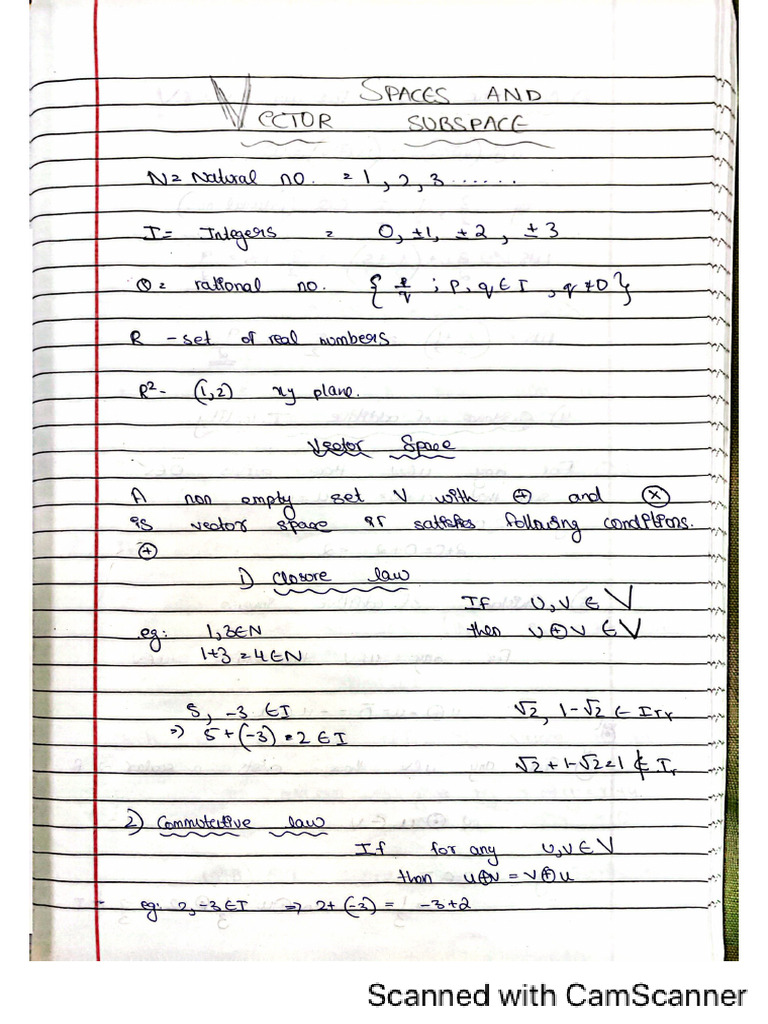 VECTOR SPACES AND SUBSPACE
N= Natural no. = 1, 2, 3 ......
I= Integers = 0, ±1, ±2, ±3
Q= rational no. { p/q ; p, q ∈ I , q ≠ 0 }
R - set of real numbers
R²- (1,2) xy plane.
Vector Space
A non empty set V with ⊕ and ⊗
is vector space if satisfies following conditions.
⊕
1) Closure law
If u, v ∈ V
eg: 1,3∈N then u⊕v ∈ V
1+3 = 4∈N
5, -3 ∈ I √2, 1-√2 ∈ Irr
=> 5+(-3) = 2 ∈ I
√2 + 1-√2 = 1 ∉ Ir
2) Commutative law
If for any u,v∈V
then u⊕v = v⊕u
eg: 2,-3∈I => 2+(-3) = -3+2
Scanned with CamScanner